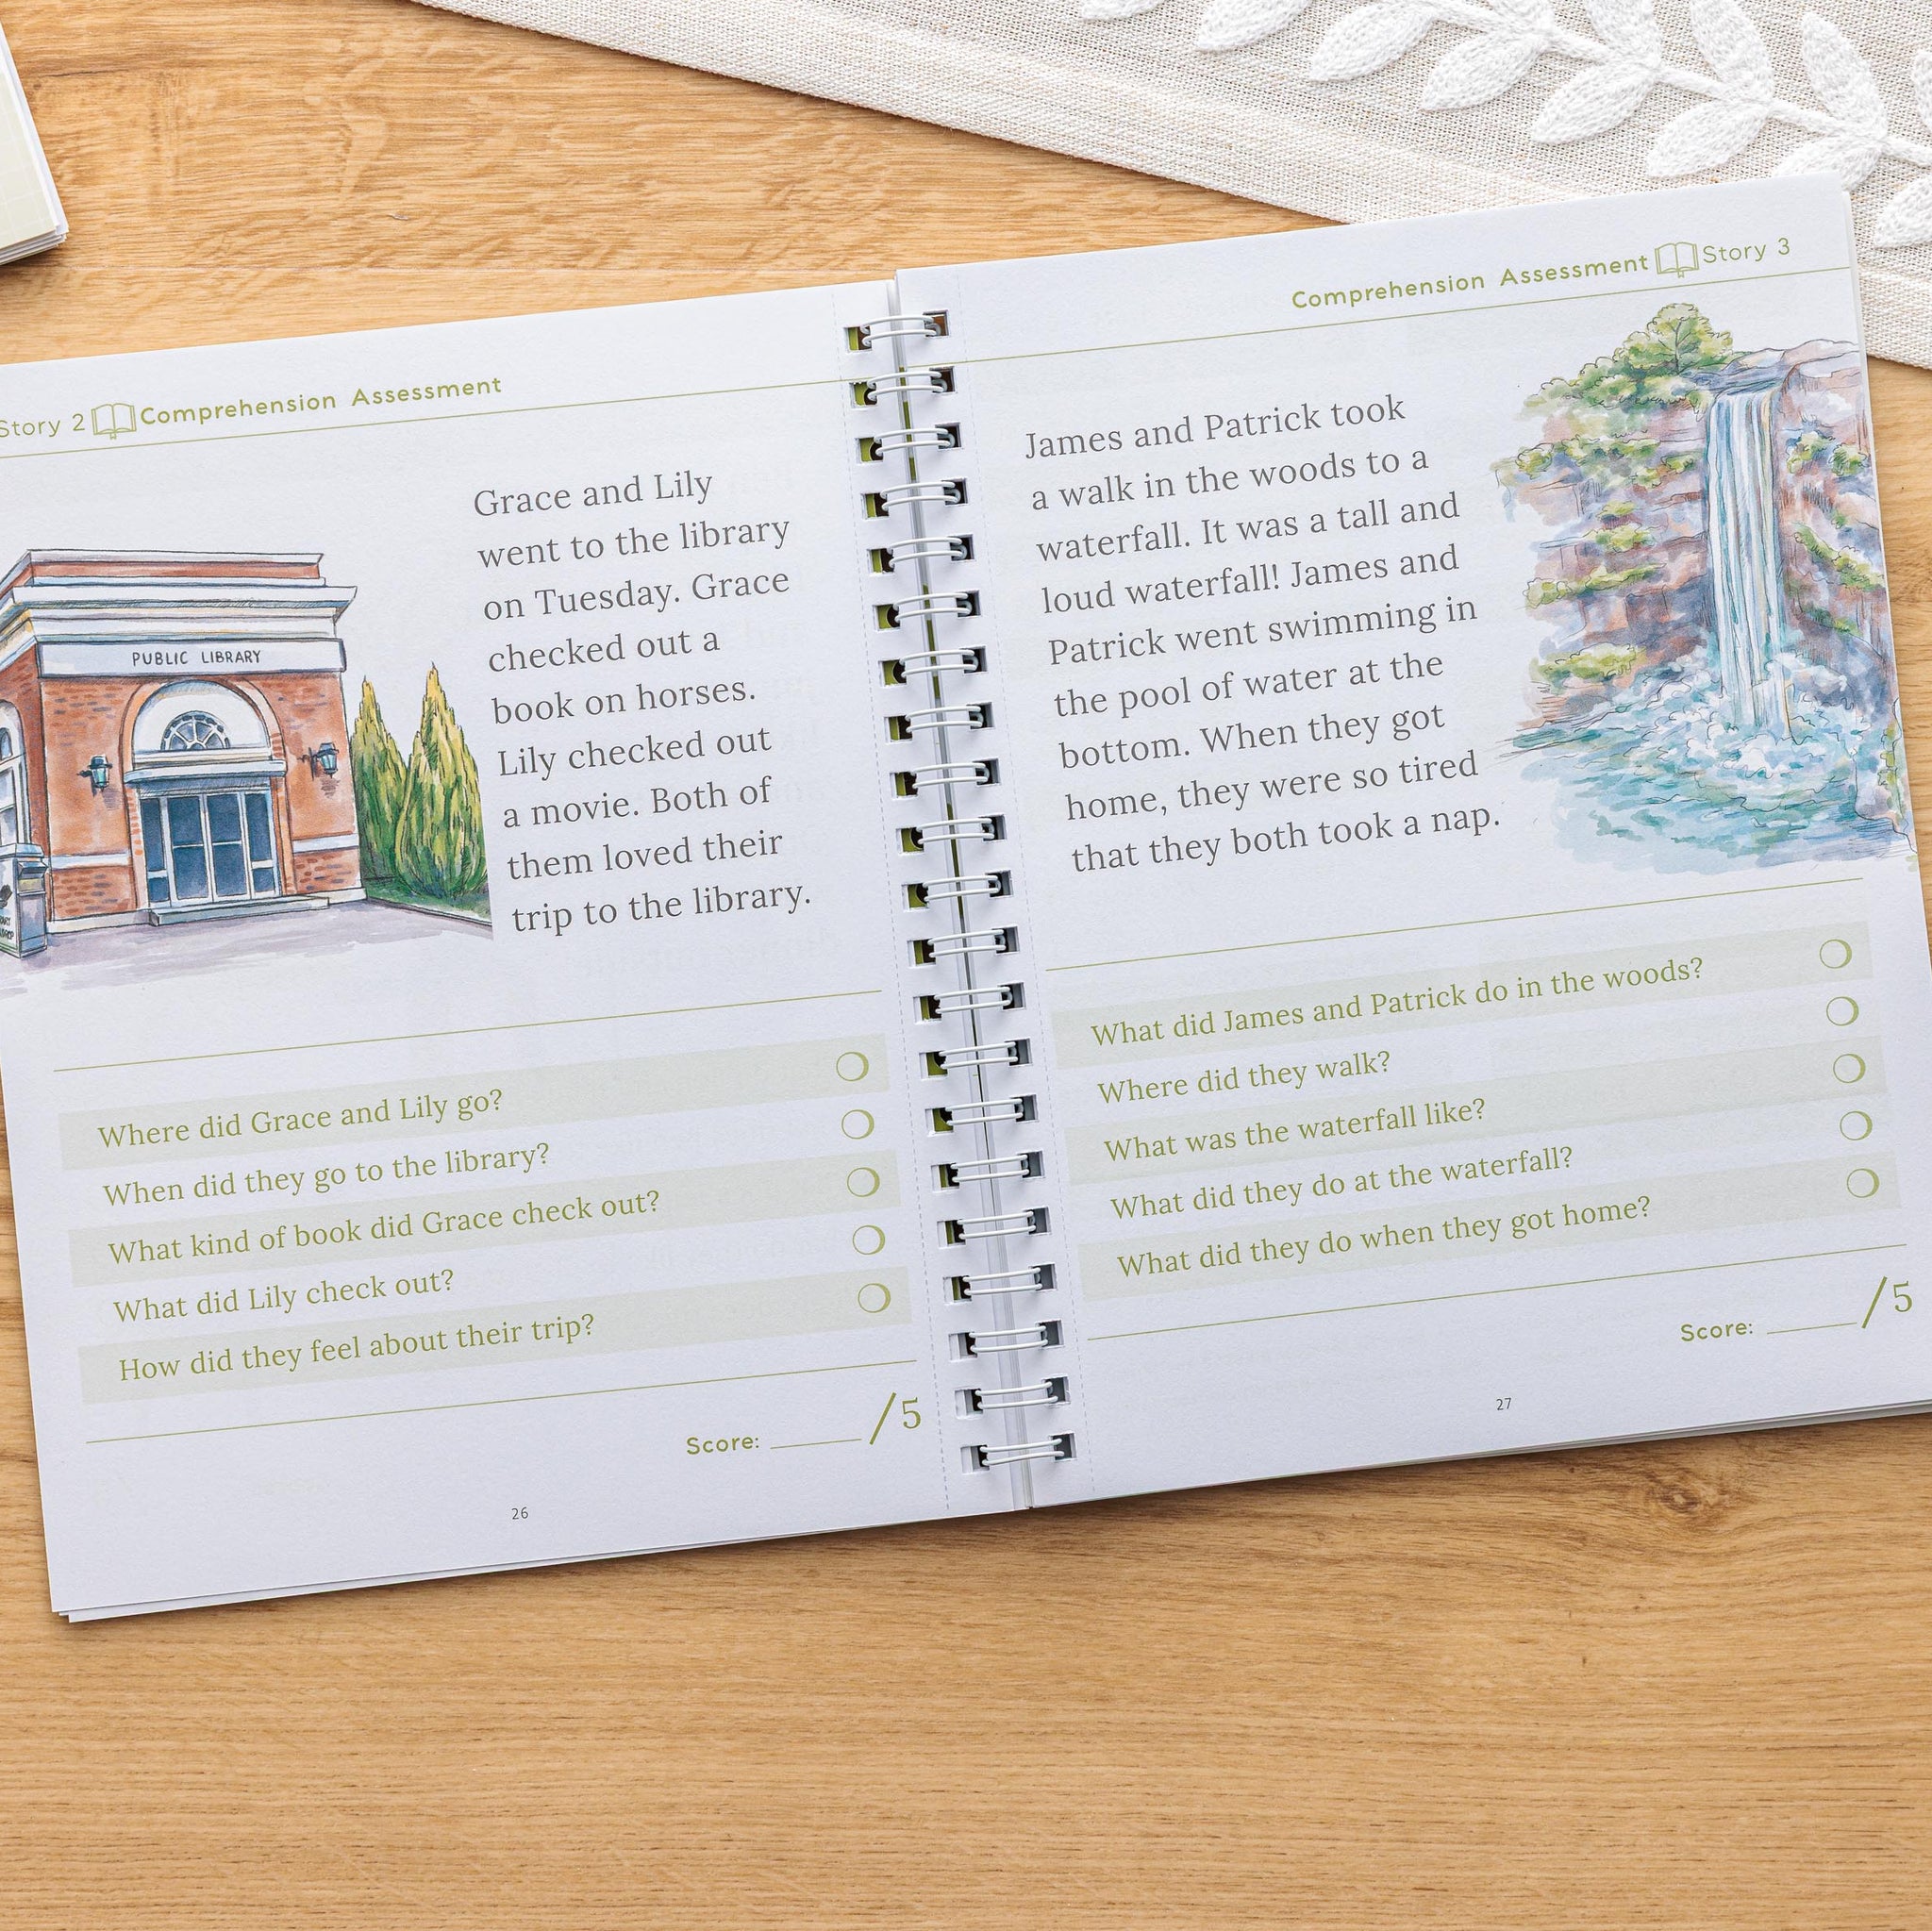 Story 2 Comprehension Assessment
PUBLIC LIBRARY
Grace and Lily
went to the library
on Tuesday. Grace
checked out a
book on horses.
Lily checked out
a movie. Both of
them loved their
trip to the library.
Where did Grace and Lily go?
When did they go to the library?
What kind of book did Grace check out?
What did Lily check out?
How did they feel about their trip?
Score: ______ /5
26
Comprehension Assessment Story 3
James and Patrick took
a walk in the woods to a
waterfall. It was a tall and
loud waterfall! James and
Patrick went swimming in
the pool of water at the
bottom. When they got
home, they were so tired
that they both took a nap.
What did James and Patrick do in the woods?
Where did they walk?
What was the waterfall like?
What did they do at the waterfall?
What did they do when they got home?
Score: ______ /5
27